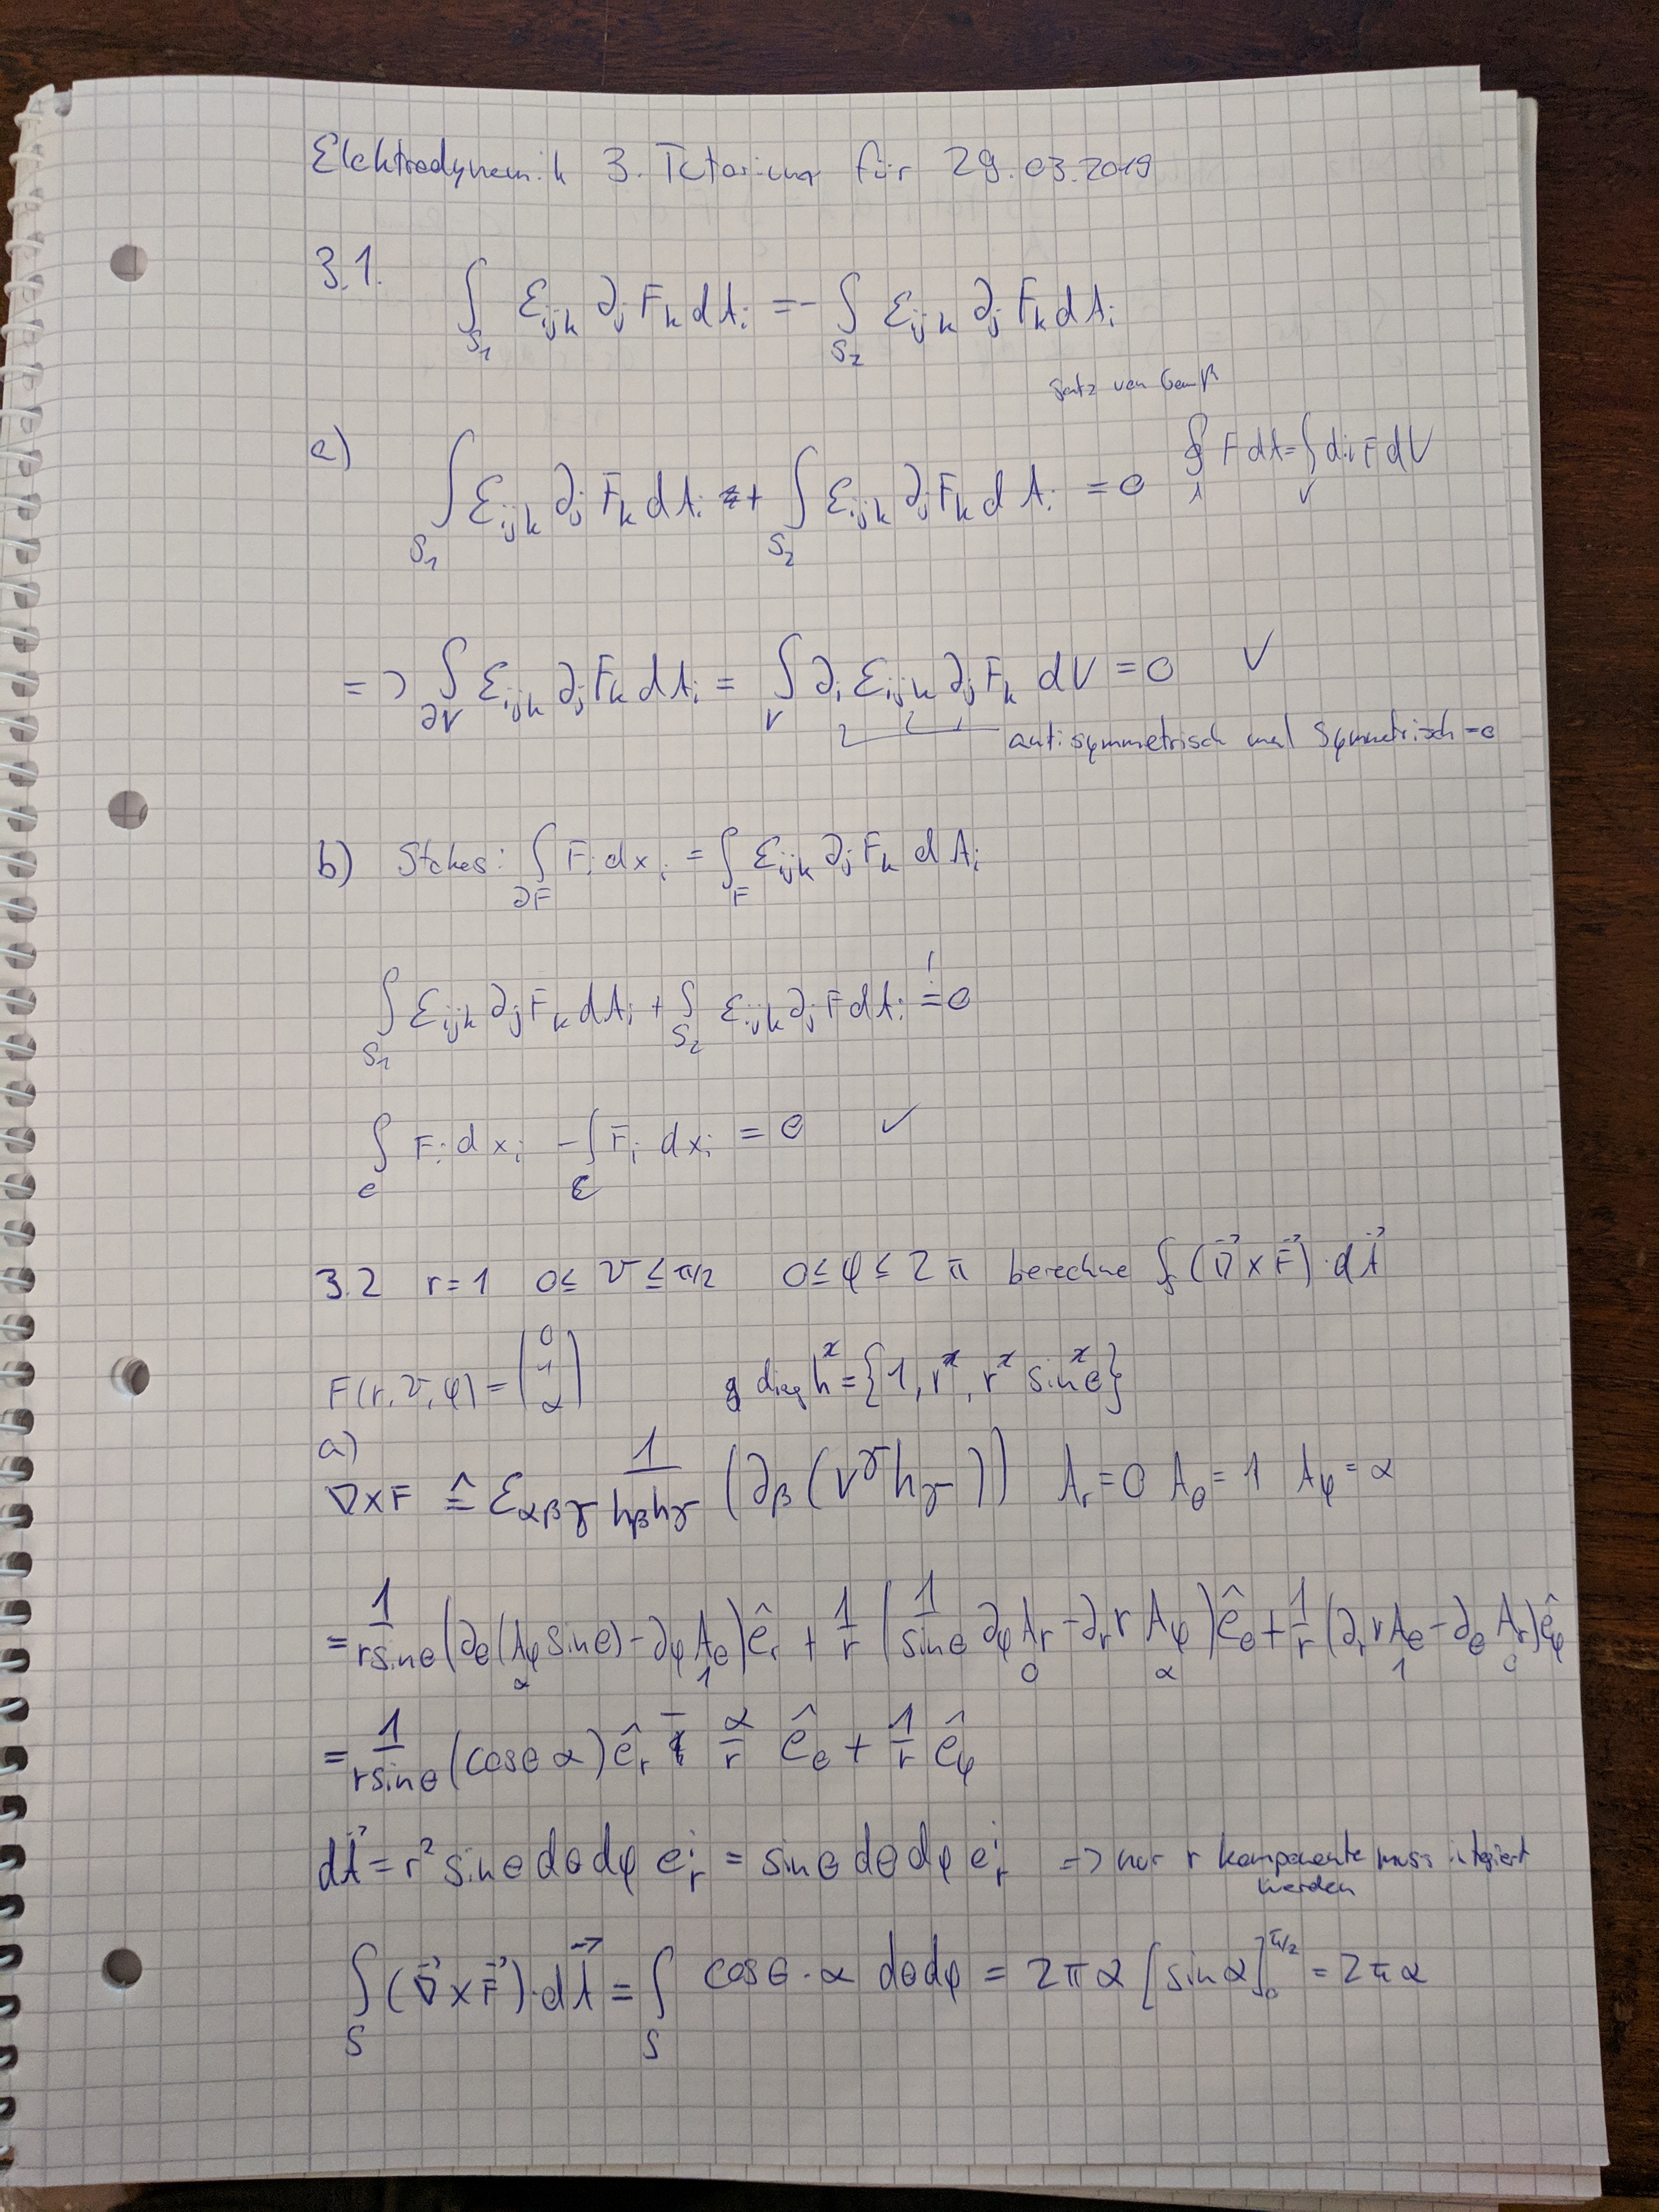 Elektrodynamik 3. Tutorium für 29.03.2019
3.1. ∫_{S₁} ε_{ijk} ∂_j F_k dA_i = - ∫_{S₂} ε_{ijk} ∂_j F_k dA_i
Satz von Gauß
a) ∫_{S₁} ε_{ijk} ∂_j F_k dA_i + ∫_{S₂} ε_{ijk} ∂_j F_k dA_i = 0 ∮_A F dA = ∫_V div F dV
=> ∫_{∂V} ε_{ijk} ∂_j F_k dA_i = ∫_V ∂_i ε_{ijk} ∂_j F_k dV = 0 ✓
antisymmetrisch mal symmetrisch = 0
b) Stokes: ∫_{∂F} F_i dx_i = ∫_F ε_{ijk} ∂_j F_k dA_i
∫_{S₁} ε_{ijk} ∂_j F_k dA_i + ∫_{S₂} ε_{ijk} ∂_j F dA_i =! 0
∫_C F_i dx_i - ∫_C F_i dx_i = 0 ✓
3.2 r = 1 0 ≤ ϑ ≤ π/2 0 ≤ φ ≤ 2π berechne ∫ (∇⃗ × F⃗) · dA⃗
F(r, ϑ, φ) = (0 1 α) g diag h = {1, r, r sin θ}
a)
∇×F ≙ ε_{αβγ} 1/(h_β h_γ) (∂_β (v^γ h_γ)) A_r = 0 A_θ = 1 A_φ = α
= 1/(r sin θ) (∂_θ (A_φ sin θ) - ∂_φ A_θ) ê_r + 1/r (1/(sin θ) ∂_φ A_r - ∂_r r A_φ) ê_θ + 1/r (∂_r r A_θ - ∂_θ A_r) ê_φ
α 1 0 α 1 0
= 1/(r sin θ) (cos θ α) ê_r - α/r ê_θ + 1/r ê_φ
dA⃗ = r² sin θ dθ dφ e_r^i = sin θ dθ dφ e_r^i => nur r komponente muss integriert
werden
∫_S (∇⃗ × F⃗) · dA⃗ = ∫_S cos θ · α dθ dφ = 2πα [sin α]_0^{π/2} = 2πα